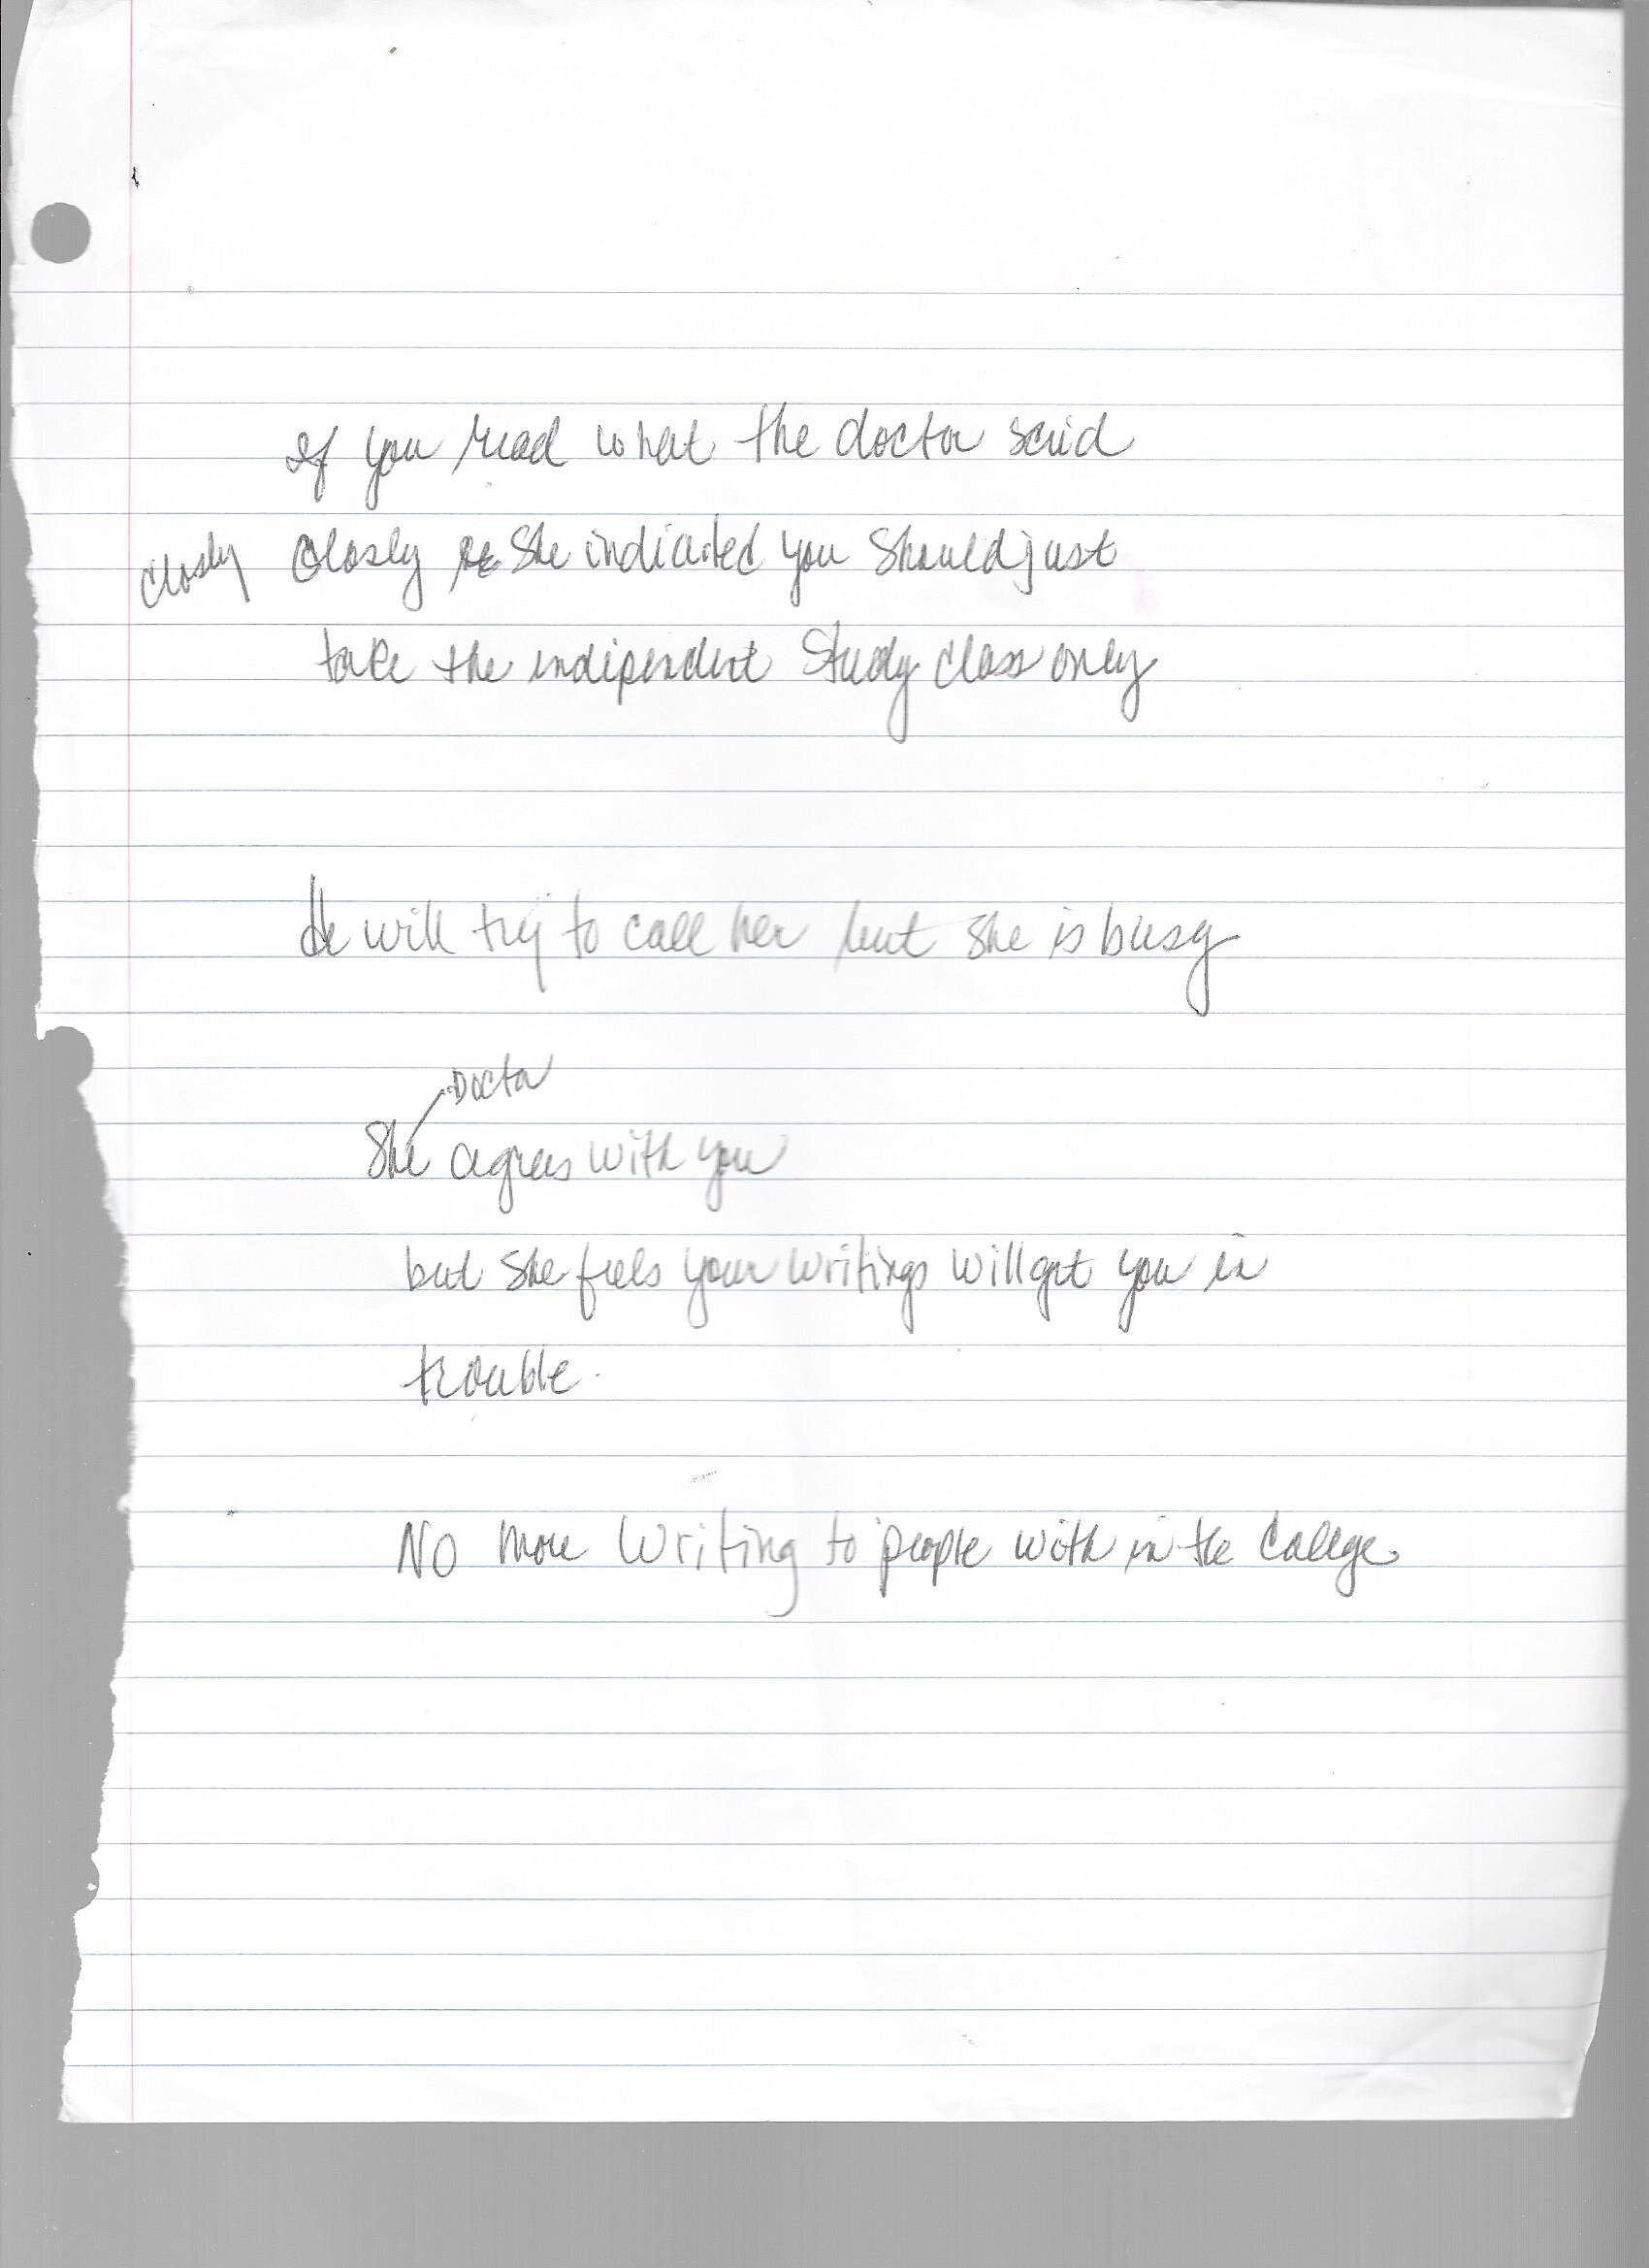 If you read what the doctor said
closly closly she indicated you should just
take the independent study class only
He will try to call her but she is busy
Doctor
She agrees with you
but she feels your writings will get you in
trouble.
No more writing to people with in the College.